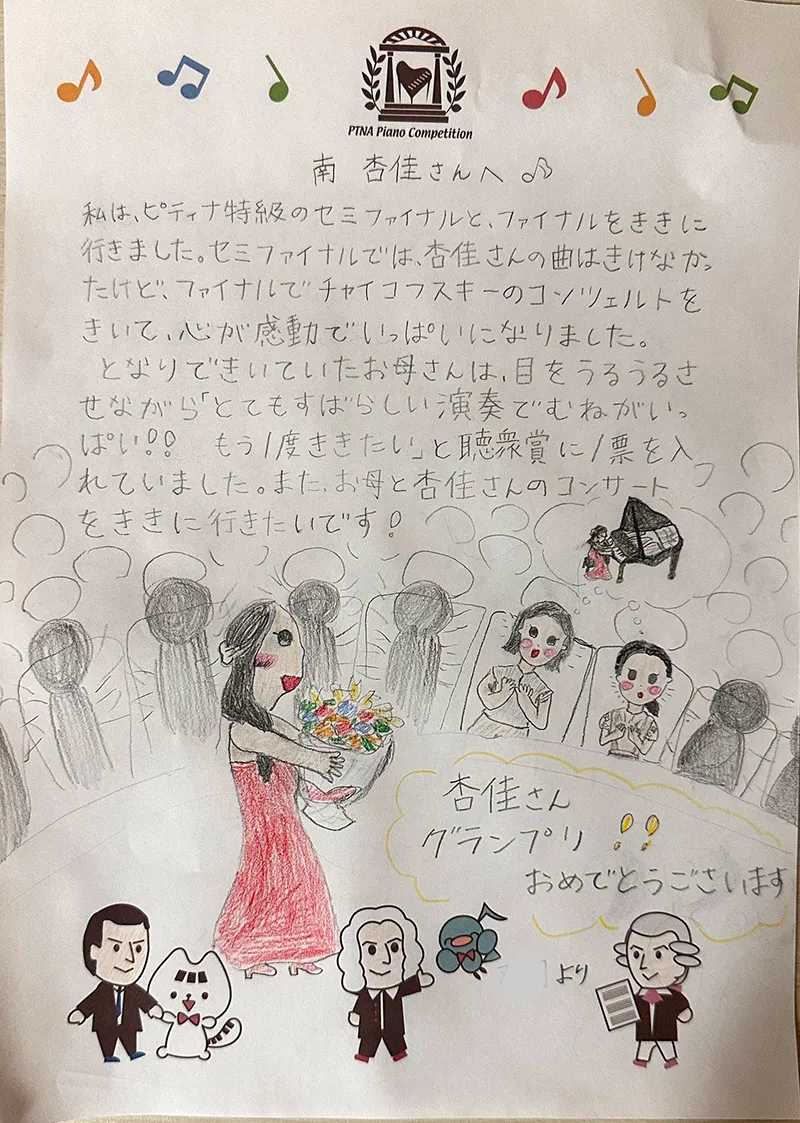 PTNA Piano Competition
南 杏佳さんへ
私は、ピティナ特級のセミファイナルと、ファイナルをききに
行きました。セミファイナルでは、杏佳さんの曲はきけなかっ
たけど、ファイナルでチャイコフスキーのコンツェルトを
きいて、心が感動でいっぱいになりました。
となりできいていたお母さんは、目をうるうるさ
せながら「とてもすばらしい演奏でむねがいっ
ぱい!! もう1度ききたい」と聴衆賞に1票を入
れていました。また、お母と杏佳さんのコンサート
をききに行きたいです!
杏佳さん
グランプリ !!
おめでとうございます
より